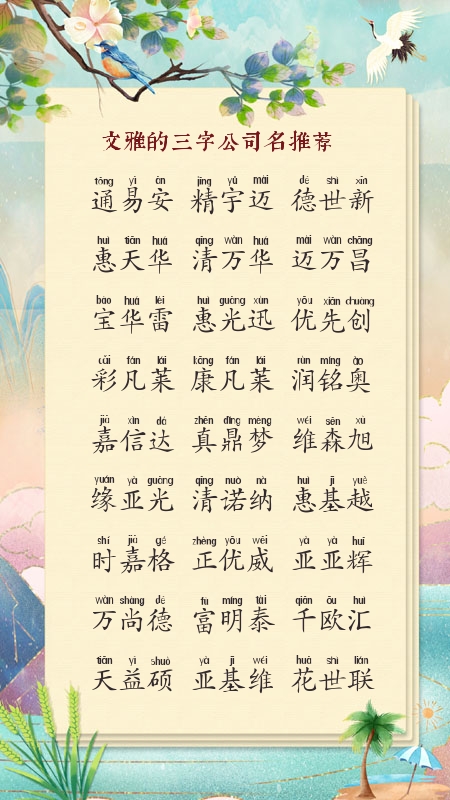 文雅的三字公司名推荐
tōng yì ān jīng yǔ mài dé shì xīn
通易安 精宇迈 德世新
huì tiān huá qīng wàn huá mài wàn chāng
惠天华 清万华 迈万昌
bǎo huá léi huì guāng xùn yōu xiān chuàng
宝华雷 惠光迅 优先创
cǎi fán lái kāng fán lái rùn míng ào
彩凡莱 康凡莱 润铭奥
jiā xìn dá zhēn dǐng mèng wéi sēn xù
嘉信达 真鼎梦 维森旭
yuán yà guāng qīng nuò nà huì jī yuè
缘亚光 清诺纳 惠基越
shí jiā gé zhèng yōu wēi yà yà huī
时嘉格 正优威 亚亚辉
wàn shàng dé fù míng tài qiān ōu huì
万尚德 富明泰 千欧汇
tiān yì shuò yà jī wéi huā shì lián
天益硕 亚基维 花世联